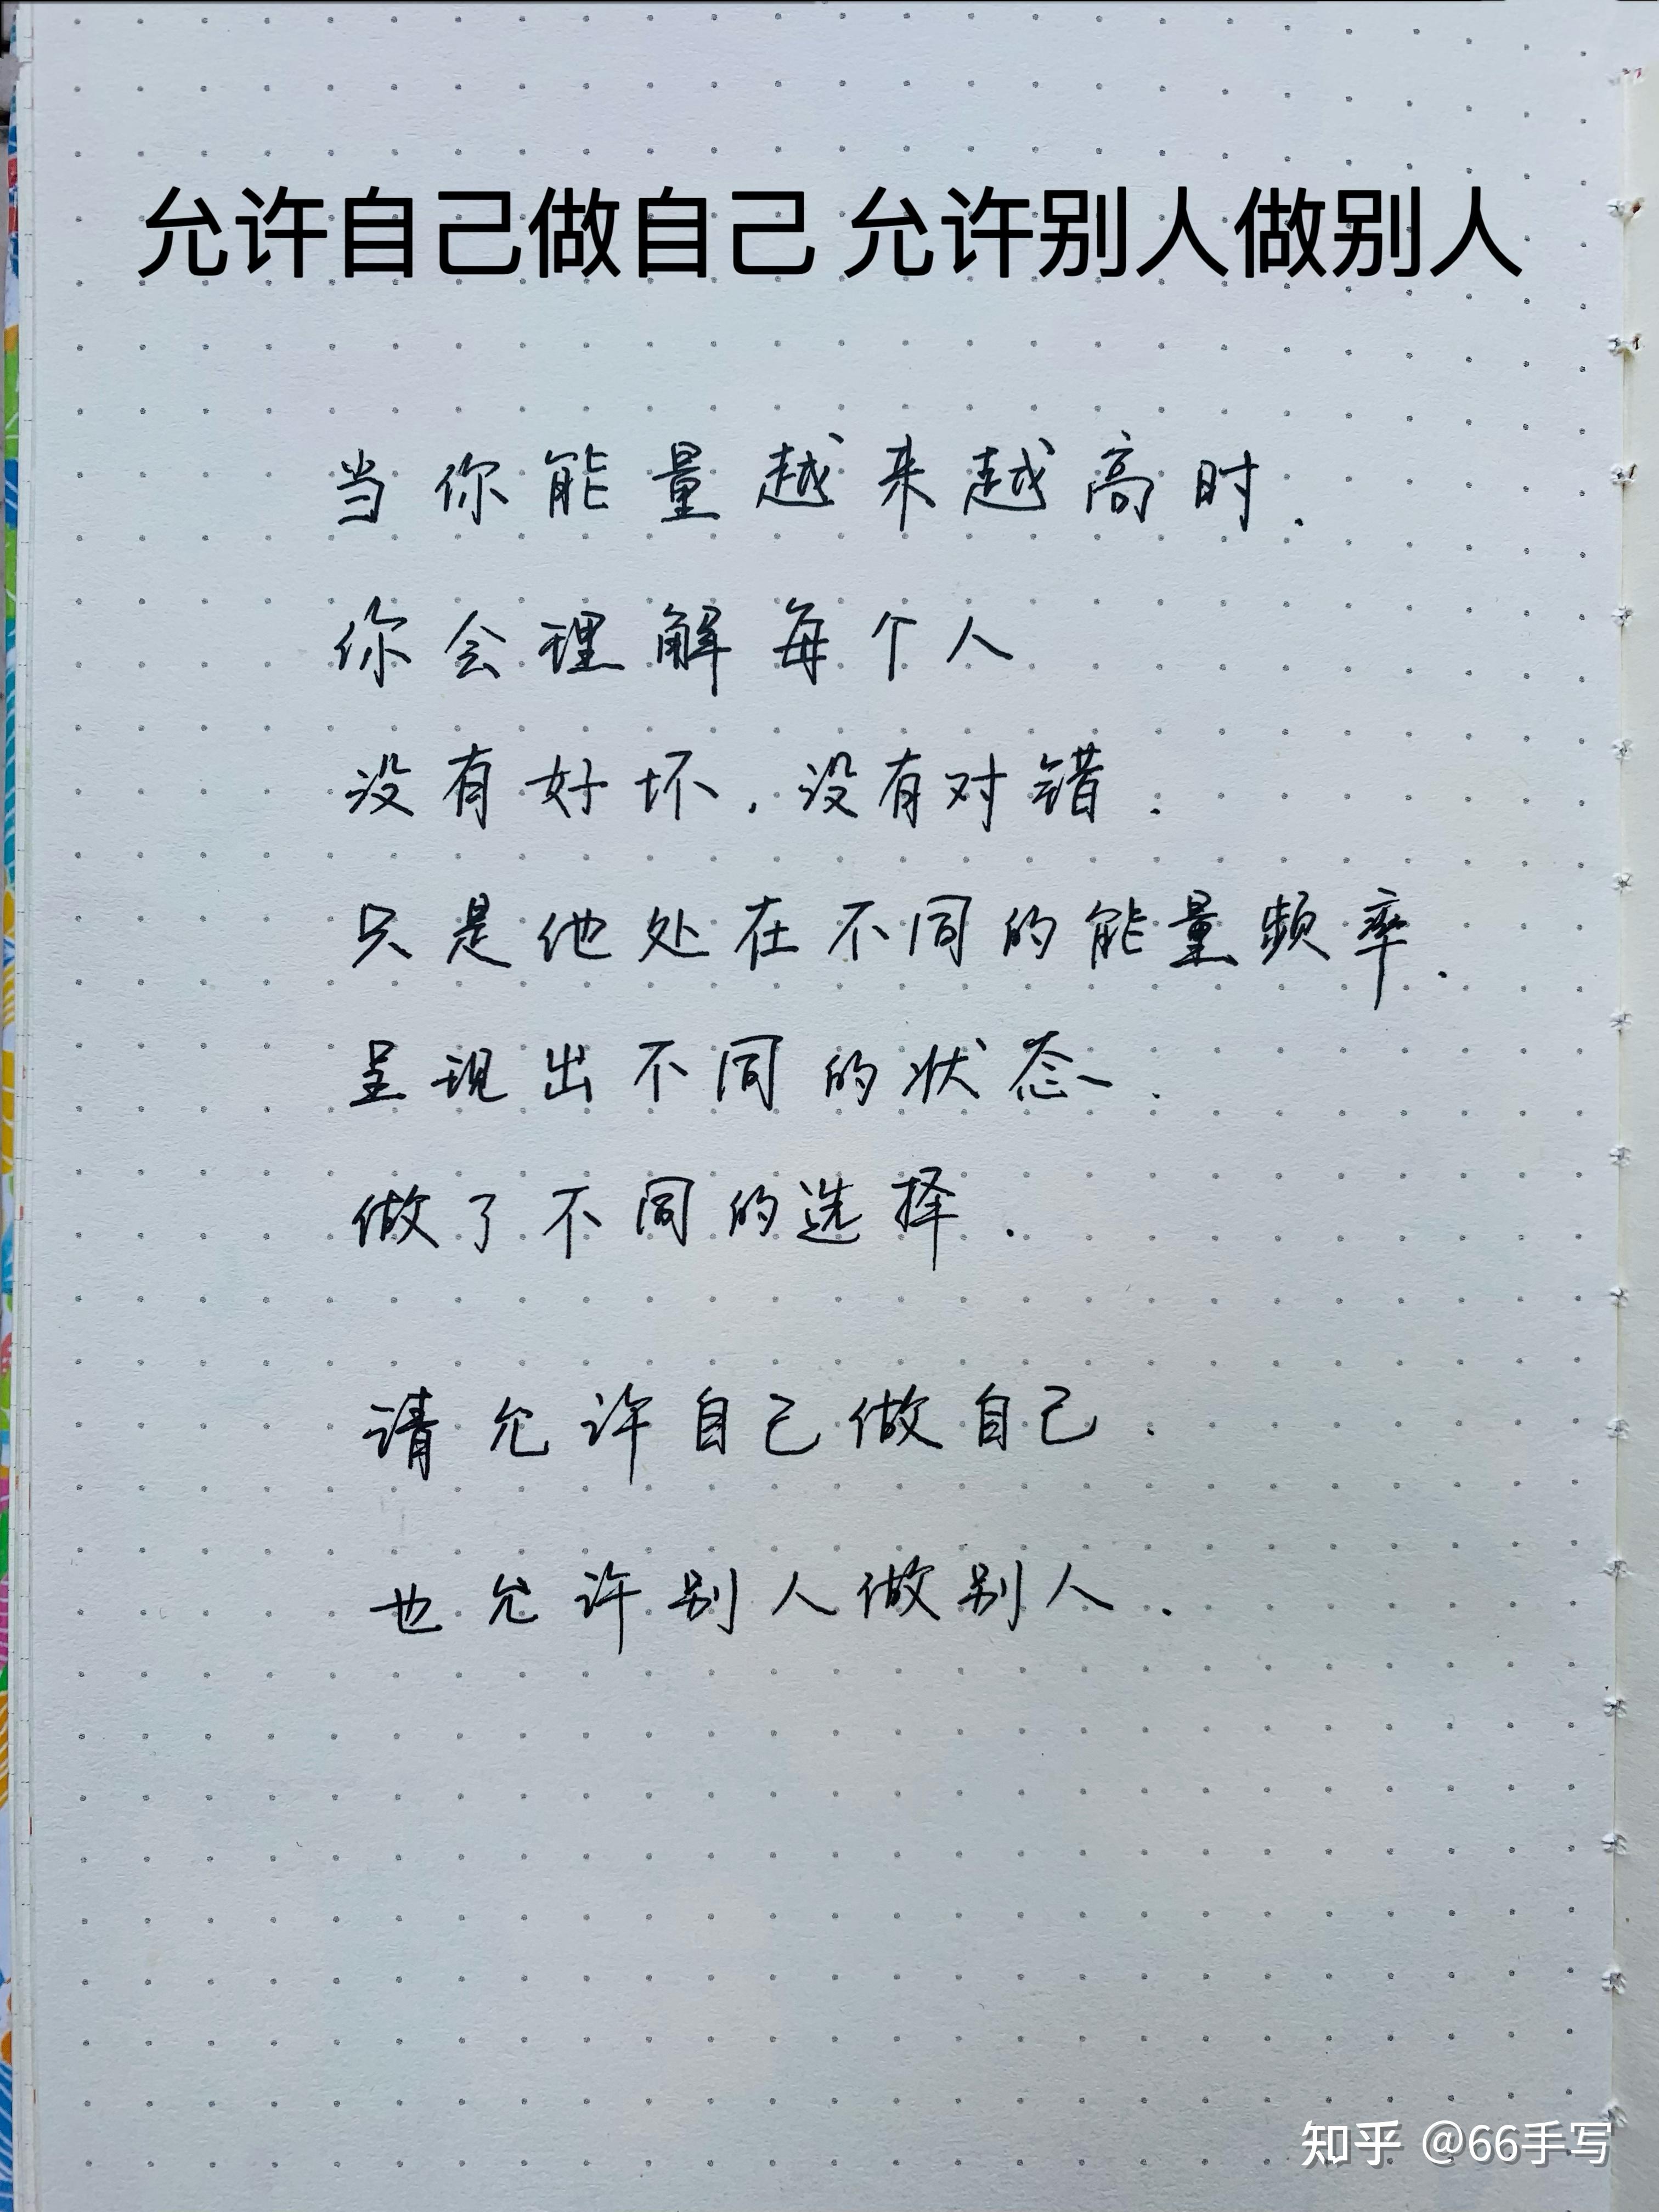 允许自己做自己 允许别人做别人
当你能量越来越高时.
你会理解每个人
没有好坏.没有对错.
只是他处在不同的能量频率.
呈现出不同的状态.
做了不同的选择.
请允许自己做自己.
也允许别人做别人.
知乎 @66手写